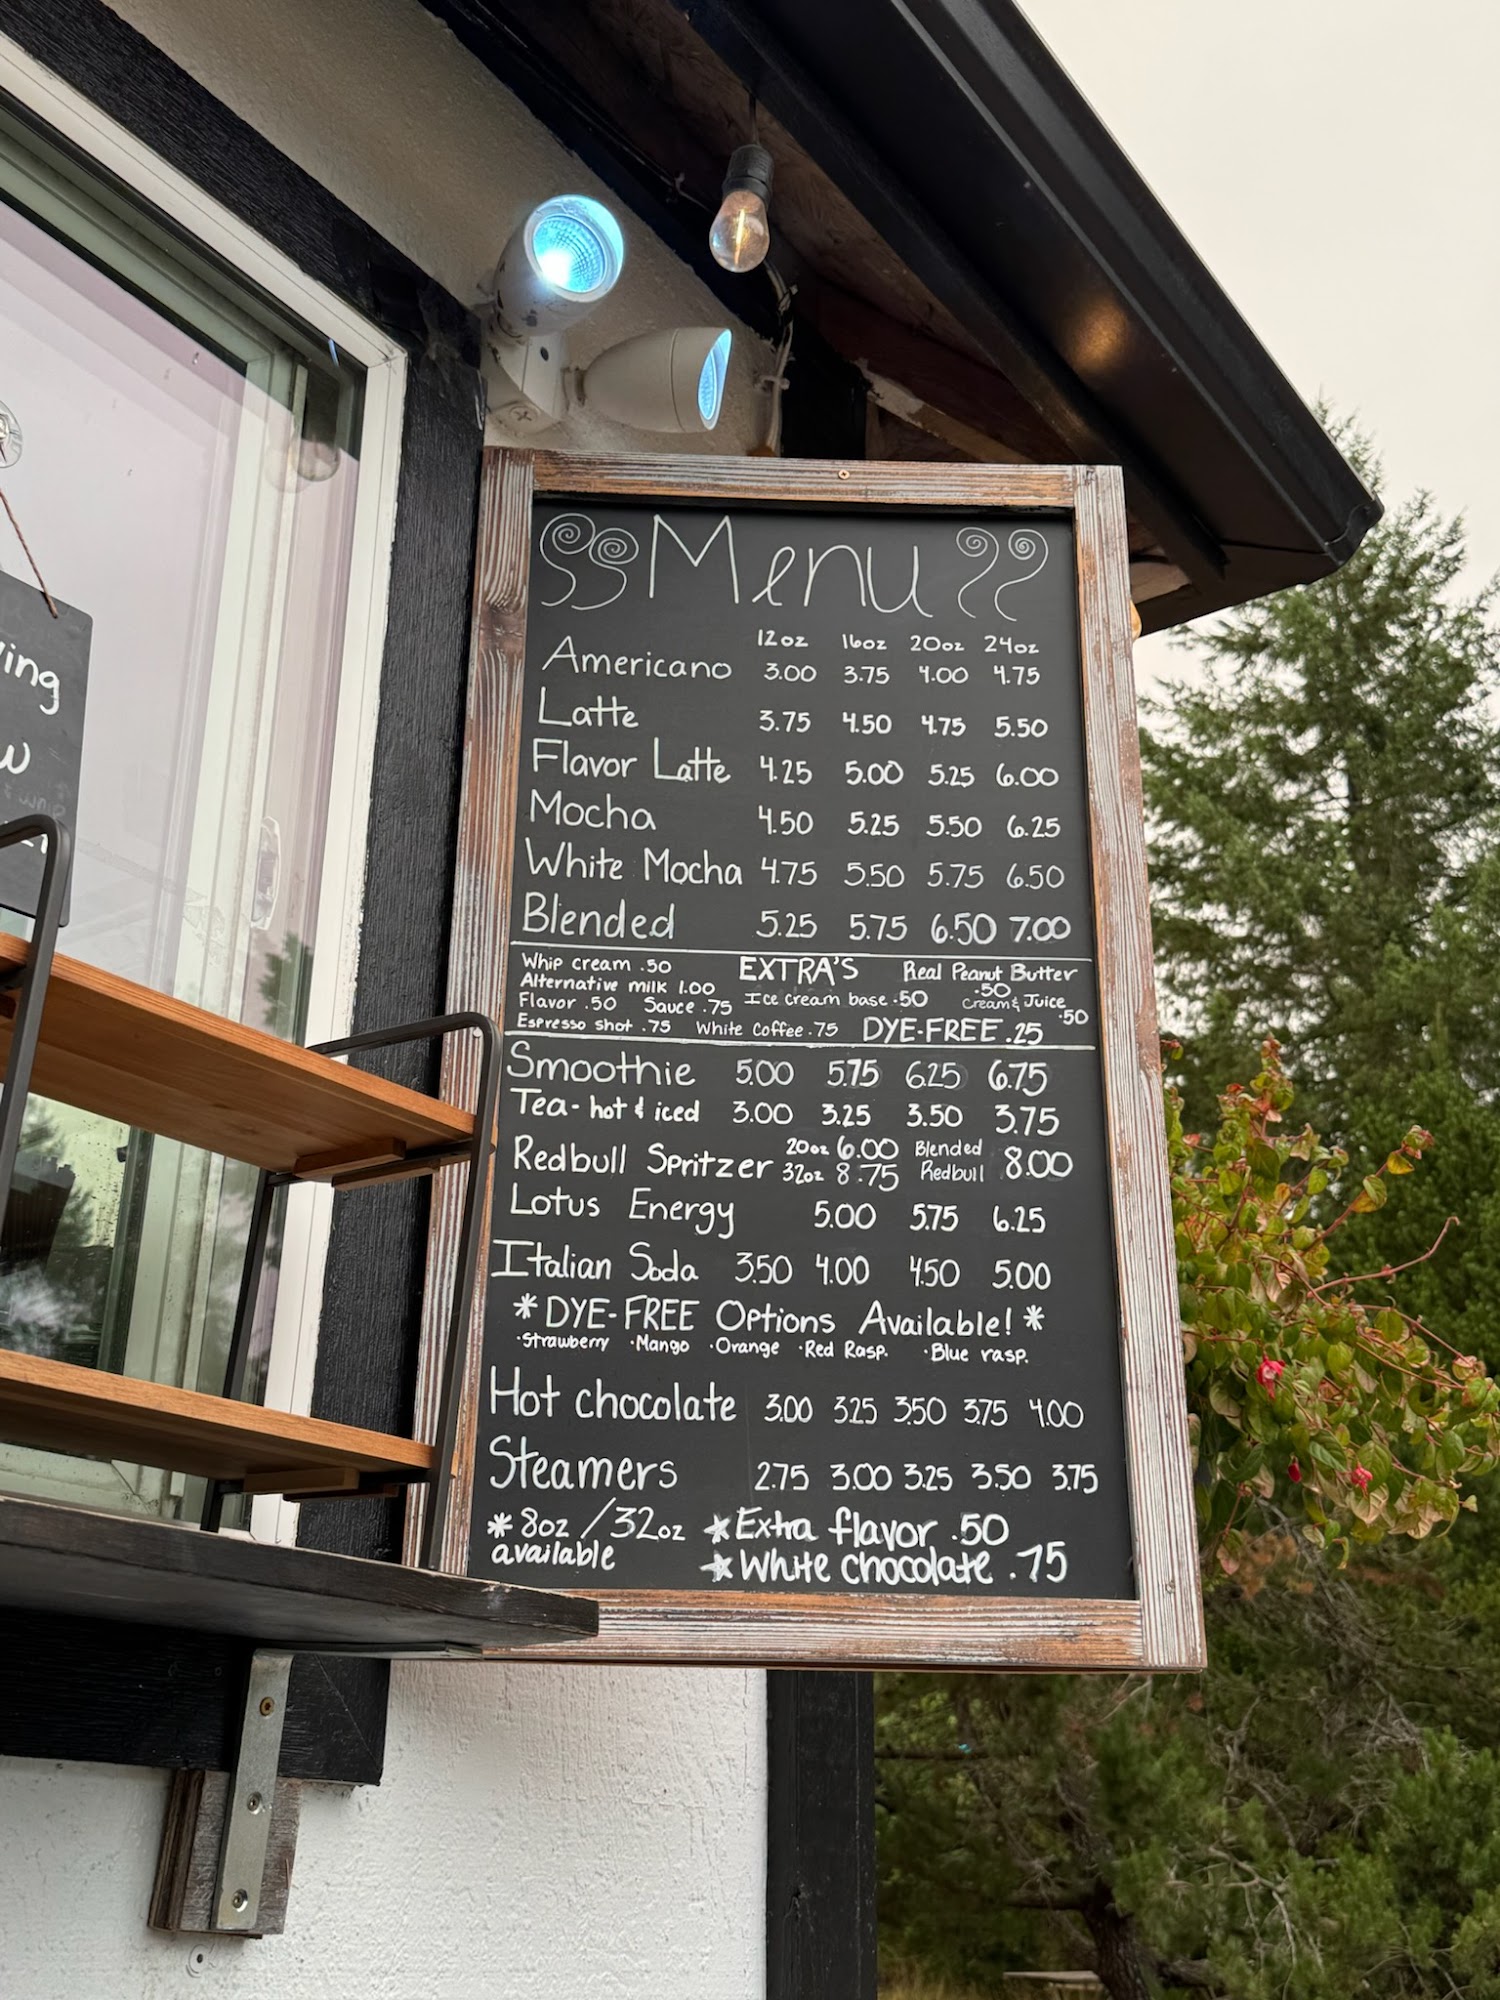 ing
w
Menu
12oz 16oz 20oz 24oz
Americano 3.00 3.75 4.00 4.75
Latte 3.75 4.50 4.75 5.50
Flavor Latte 4.25 5.00 5.25 6.00
Mocha 4.50 5.25 5.50 6.25
White Mocha 4.75 5.50 5.75 6.50
Blended 5.25 5.75 6.50 7.00
EXTRA'S
Whip cream .50
Alternative milk 1.00
Flavor .50 Sauce .75
Espresso shot .75 White Coffee .75
Ice cream base .50
Real Peanut Butter
.50
Cream & Juice
.50
DYE-FREE .25
Smoothie 5.00 5.75 6.25 6.75
Tea- hot & iced 3.00 3.25 3.50 3.75
Redbull Spritzer 20oz 6.00 Blended
32oz 8.75 Redbull 8.00
Lotus Energy 5.00 5.75 6.25
Italian Soda 3.50 4.00 4.50 5.00
* DYE-FREE Options Available! *
·Strawberry ·Mango ·Orange ·Red Rasp. ·Blue rasp.
Hot chocolate 3.00 3.25 3.50 3.75 4.00
Steamers 2.75 3.00 3.25 3.50 3.75
* 8oz / 32oz
available
★ Extra flavor .50
★ White chocolate .75